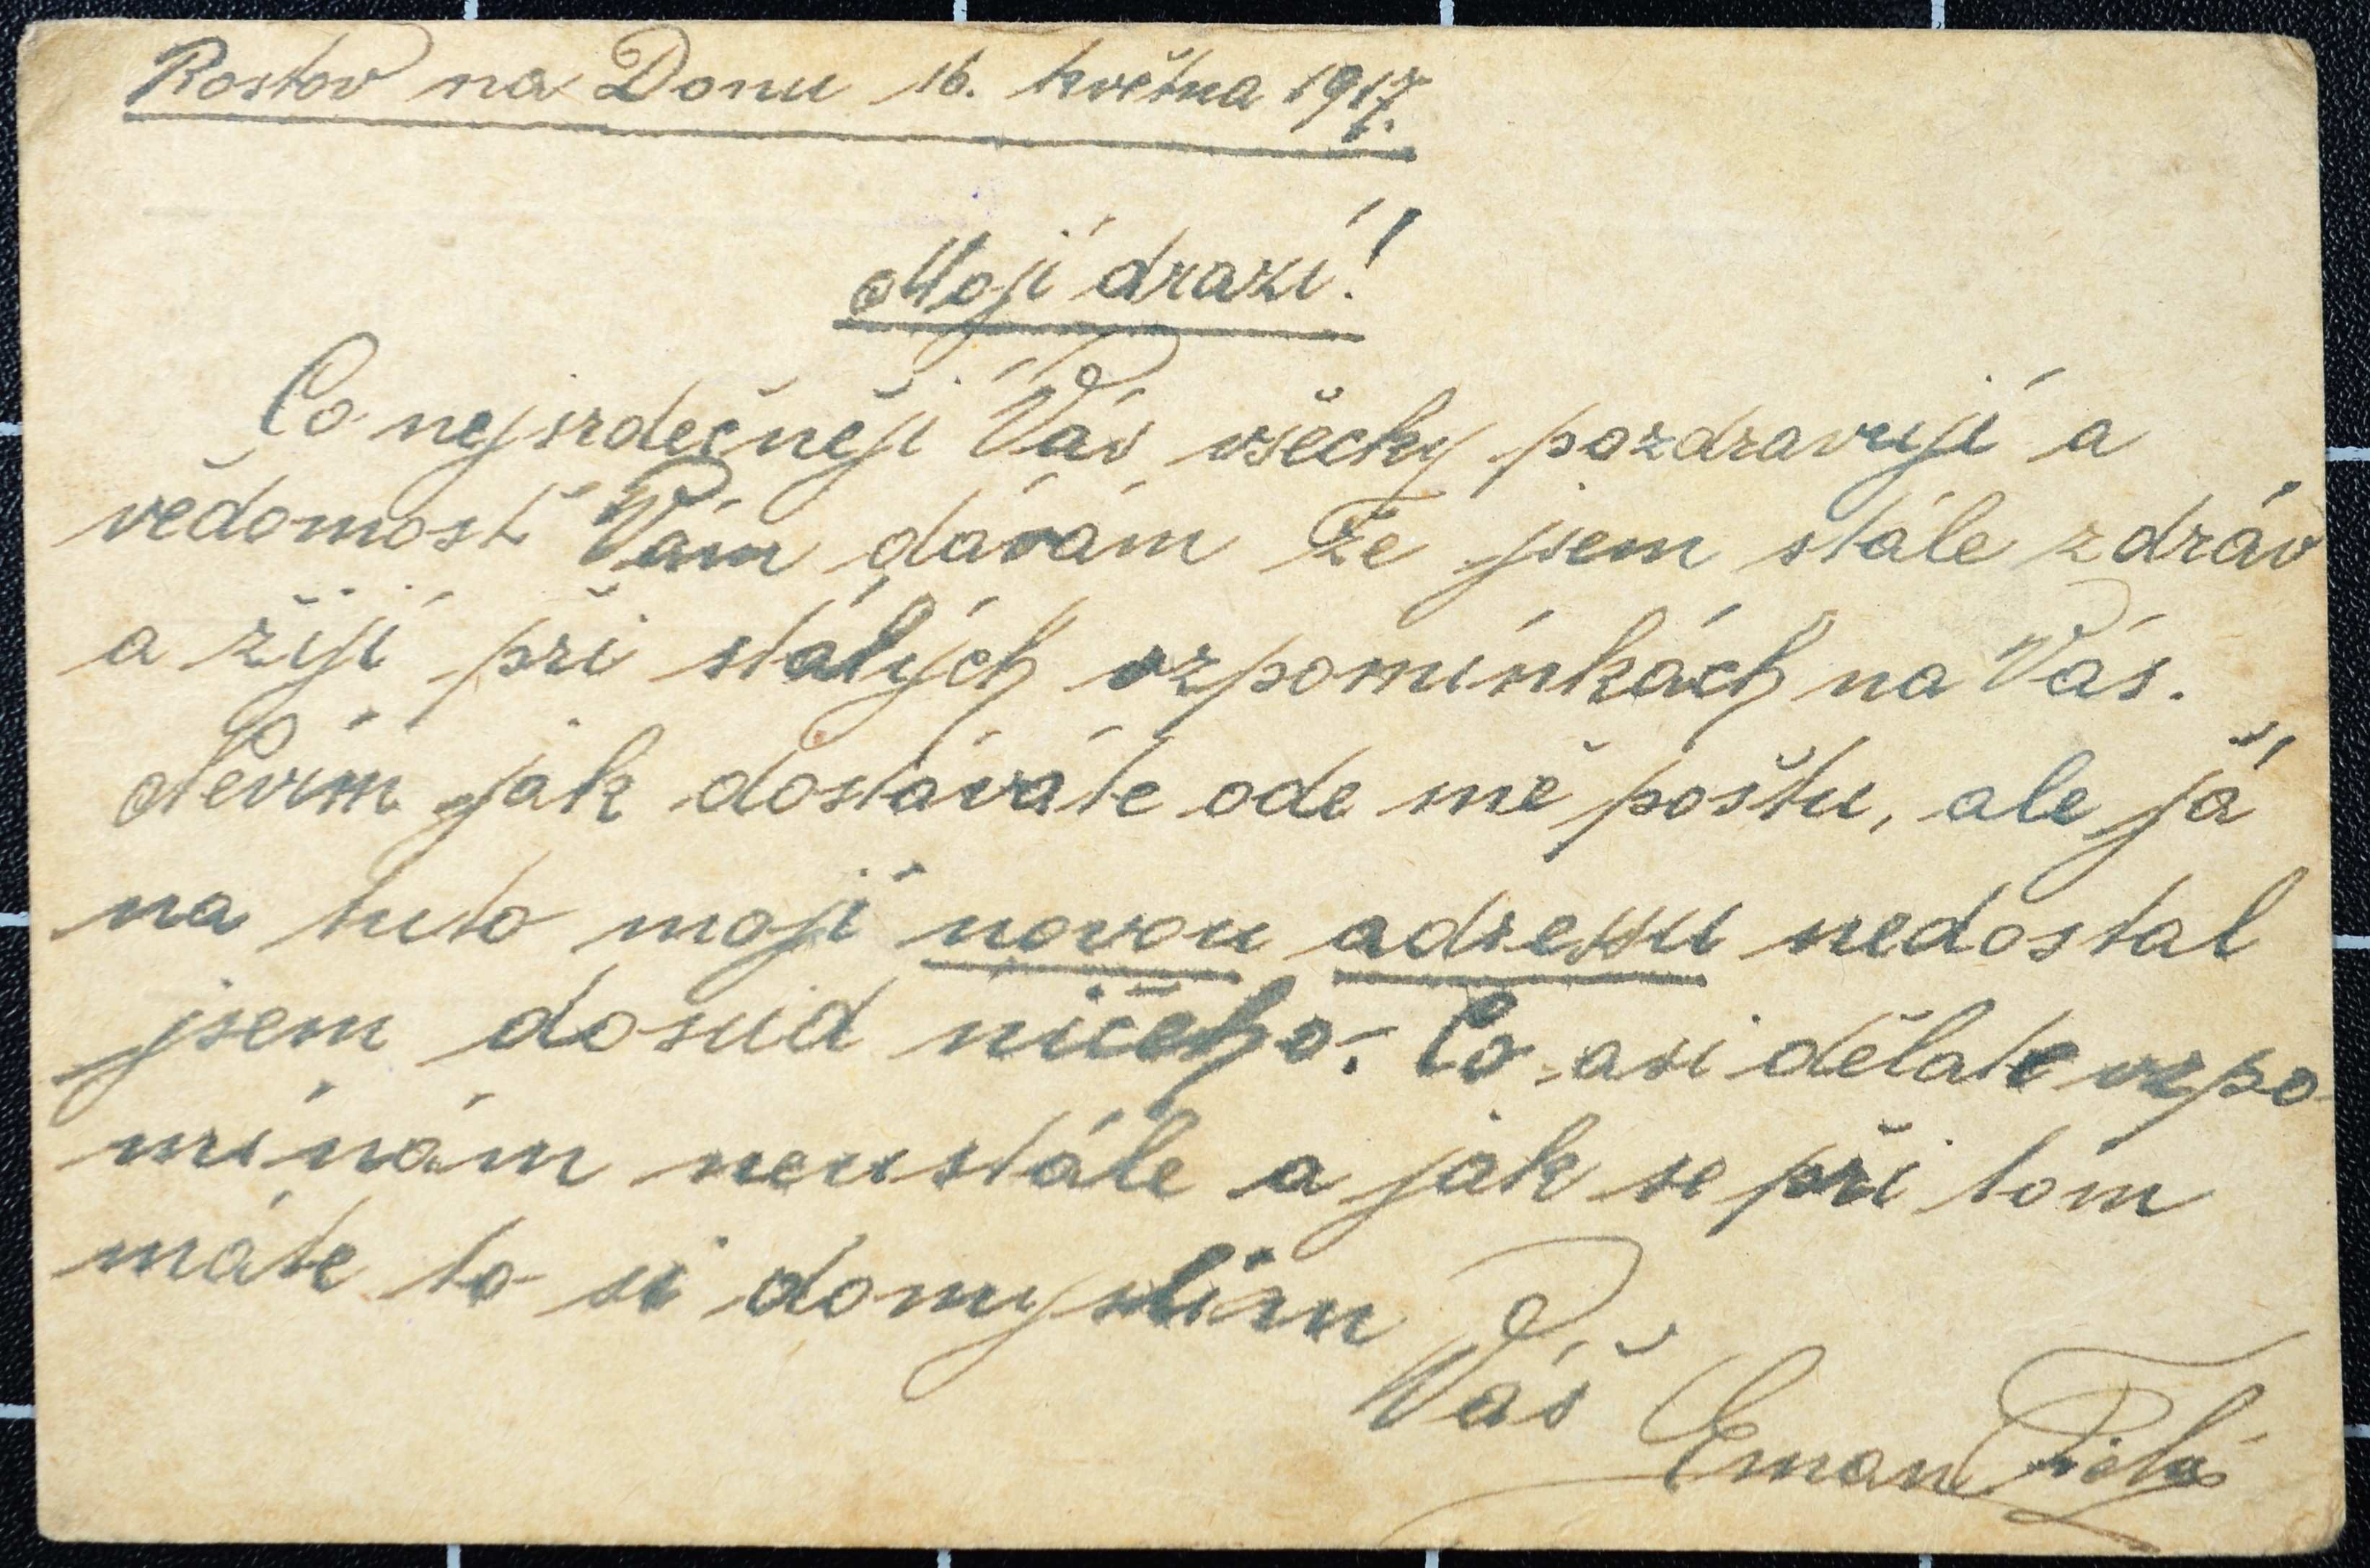 Rostov na Donu 16. května 1917.
Mojí drazí!
Co nejsrdečněji Vás všecky pozdravují a
vědomosť Vám dávám že jsem stále zdráv
a žijí při stálých vzpomínkách na Vás.
Nevím jak dostáváte ode mě poštu, ale já
na tuto mojí novou adressu nedostal
jsem dosud ničeho. Co asi děláte vzpo-
mínám neustále a jak se při tom
máte to si domyslím
Váš Eman